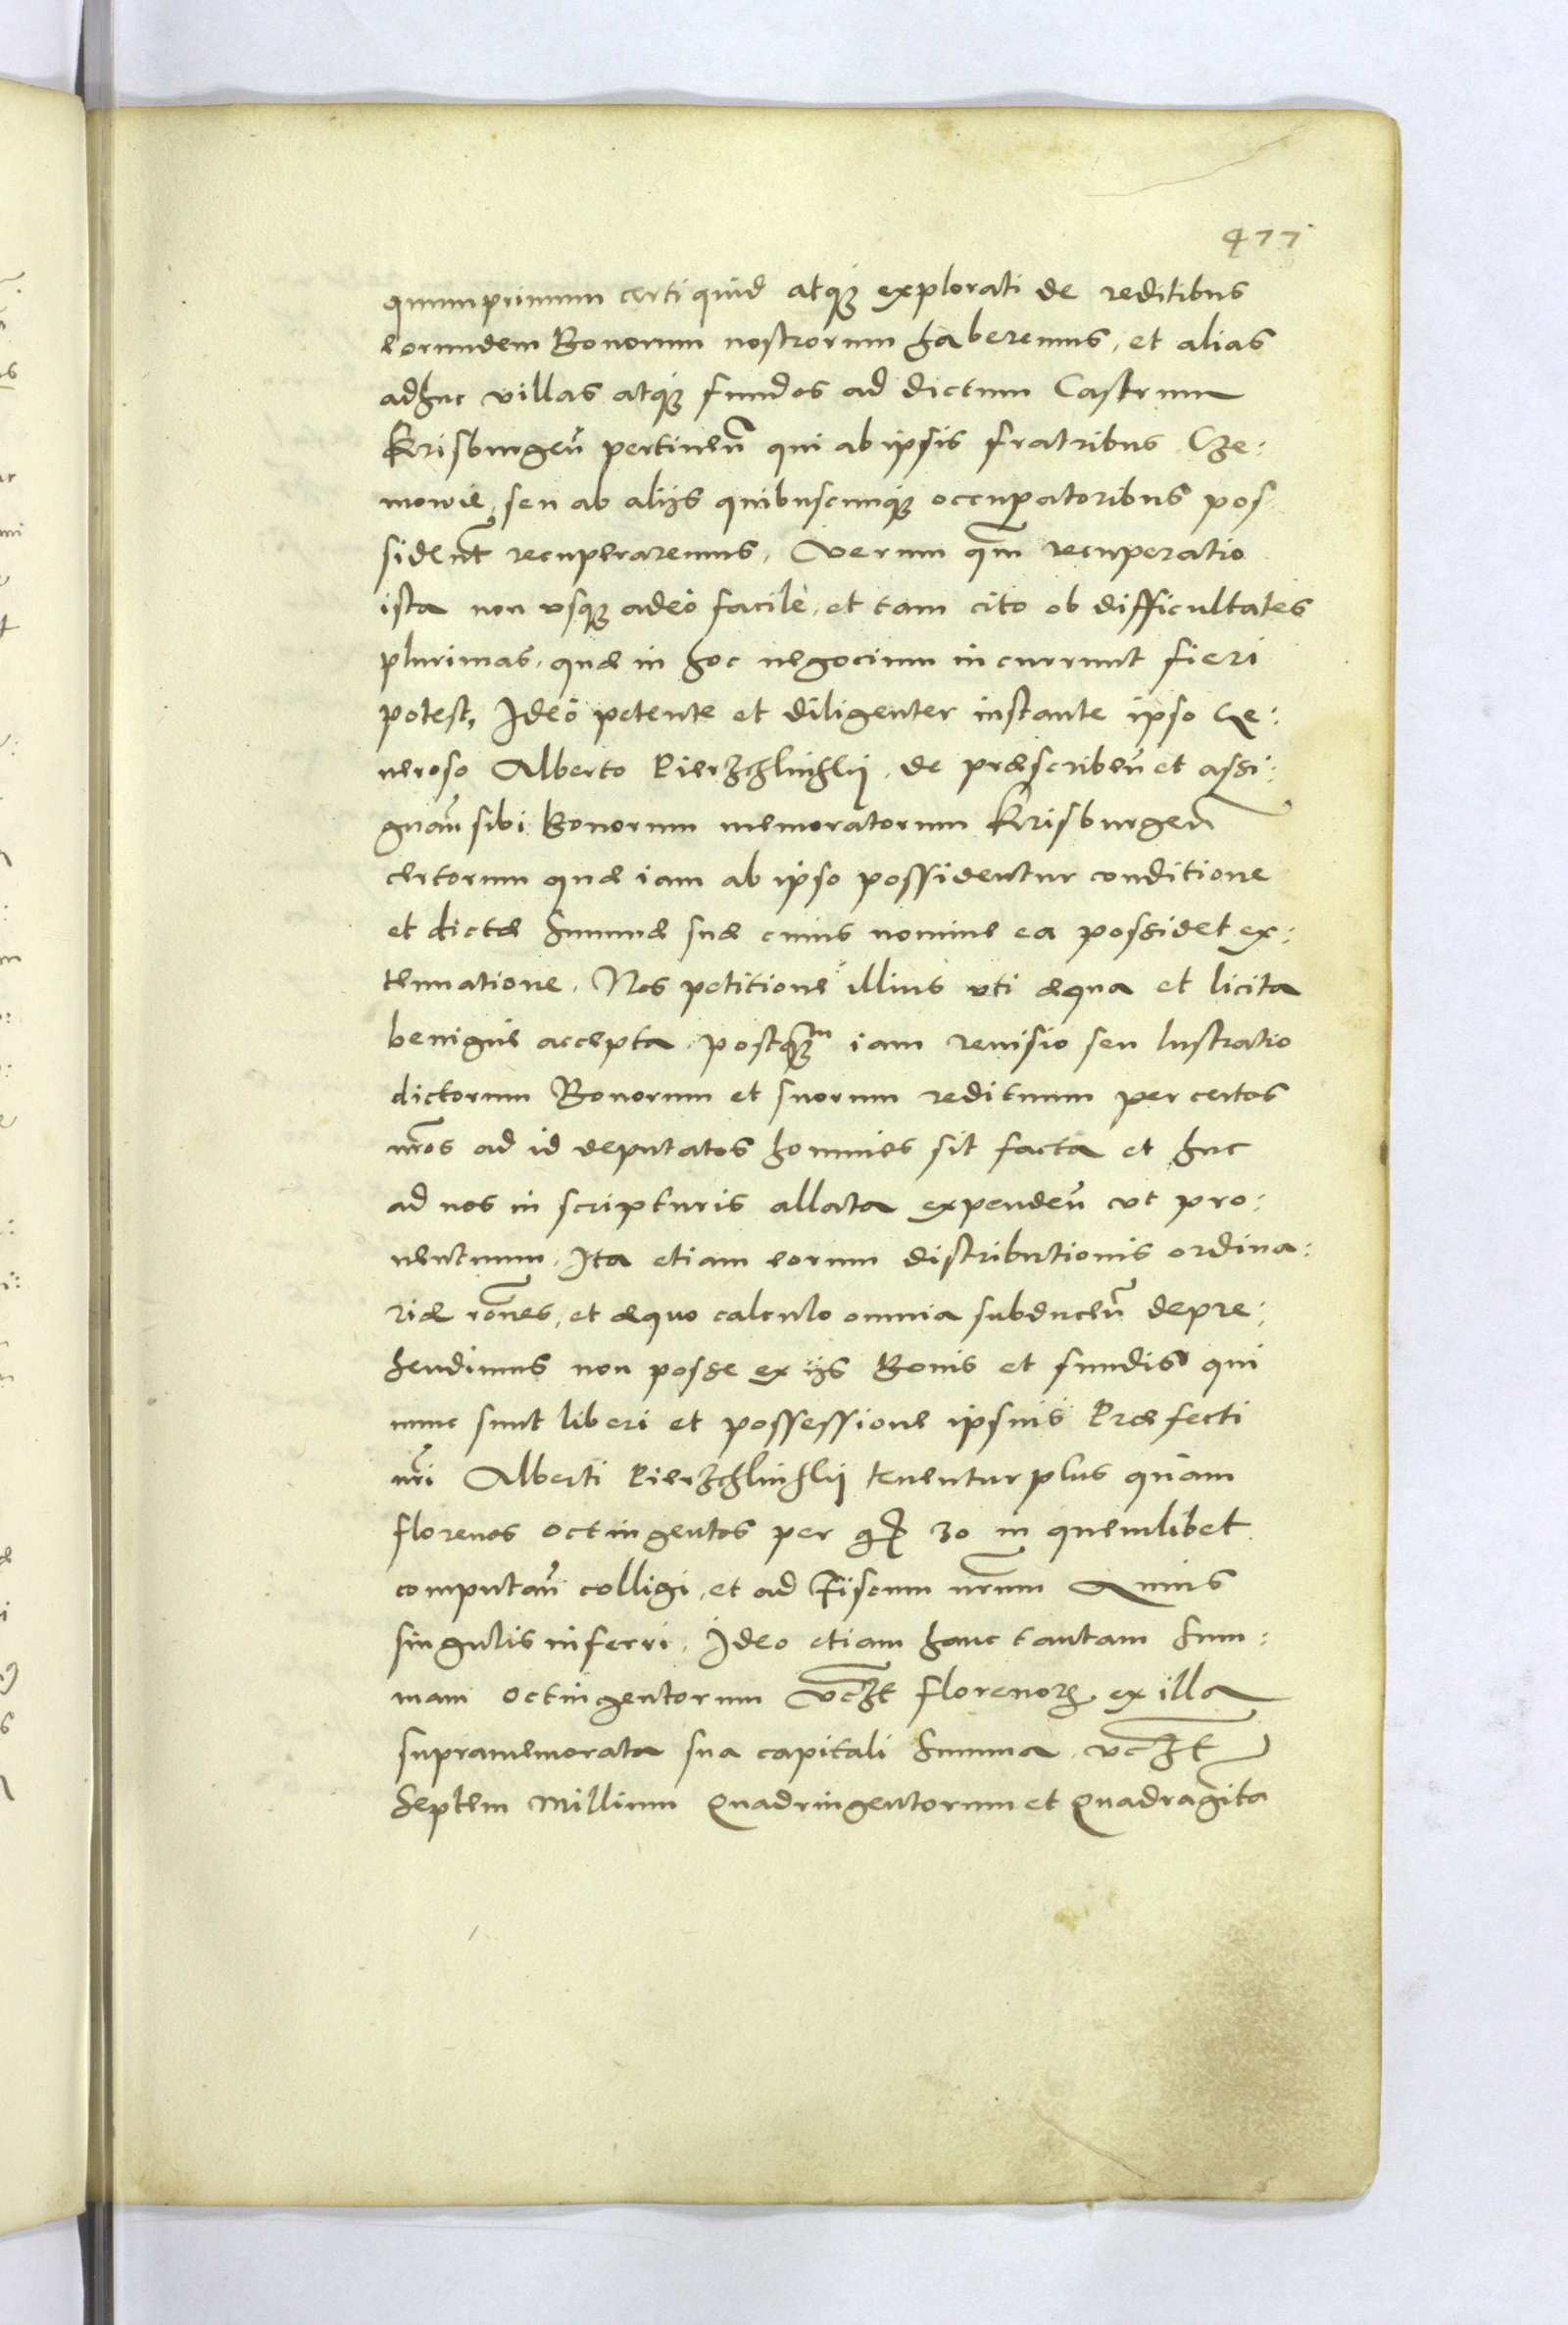 477
quumprimum certi quid atq₃ explorati de reditibus
eorundem Bonorum nostrorum haberemus, et alias
adhuc villas atq₃ fundos ad dictum Castrum
Krisburgeñ pertineñ qui ab ipsis fratribus Cze:
mowie, seu ab alijs quibuscunq₃ occupatoribus pos
sident̃ recuperaremus, Verum qm̃ recuperatio
ista non usq₃ adeo facile, et tam cito ob difficultates
plurimas, quæ in hoc negocium incurrunt fieri
potest, Ideo petente et diligenter instante ipso Ge:
neroso Alberto Pierzchlinskij, de præscribeñ et assi:
gnañ sibi Bonorum memoratorum Krisburgeñ
certorum quæ iam ab ipso possidentur conditione
et dictæ Summæ suæ cuius nomine ea possidet ex:
tenuatione. Nos petitione illius uti æqua et licita
benigne accepta, postq₃m iam reuisio seu lustratio
dictorum Bonorum et suorum redituum per certos
nr̃os ad id deputatos homines sit facta et huc
ad nos in scripturis allata expendeñ ut pro:
uentuum, Ita etiam eorum distributionis ordina:
riæ rõnes, et æquo calculo omnia subduceñ depre:
hendimus non posse ex ijs Bonis et fundis qui
nunc sunt liberi et possessione ipsuis Præfecti
nr̃i Alberti Pierzchlinskij tenentur plus quam
florenos octingentos per gꝵ 30 in quemlibet
computañ colligi, et ad Fiscum nr̃um Annis
singulis inferri. Ideo etiam hanc tantam Sum:
mam octingentorum vc̃zt florenoꝝ ex illa
supramemorata sua capitali Summa, vc̃zt
Septem Millium Quadringentorum et Quadragĩta